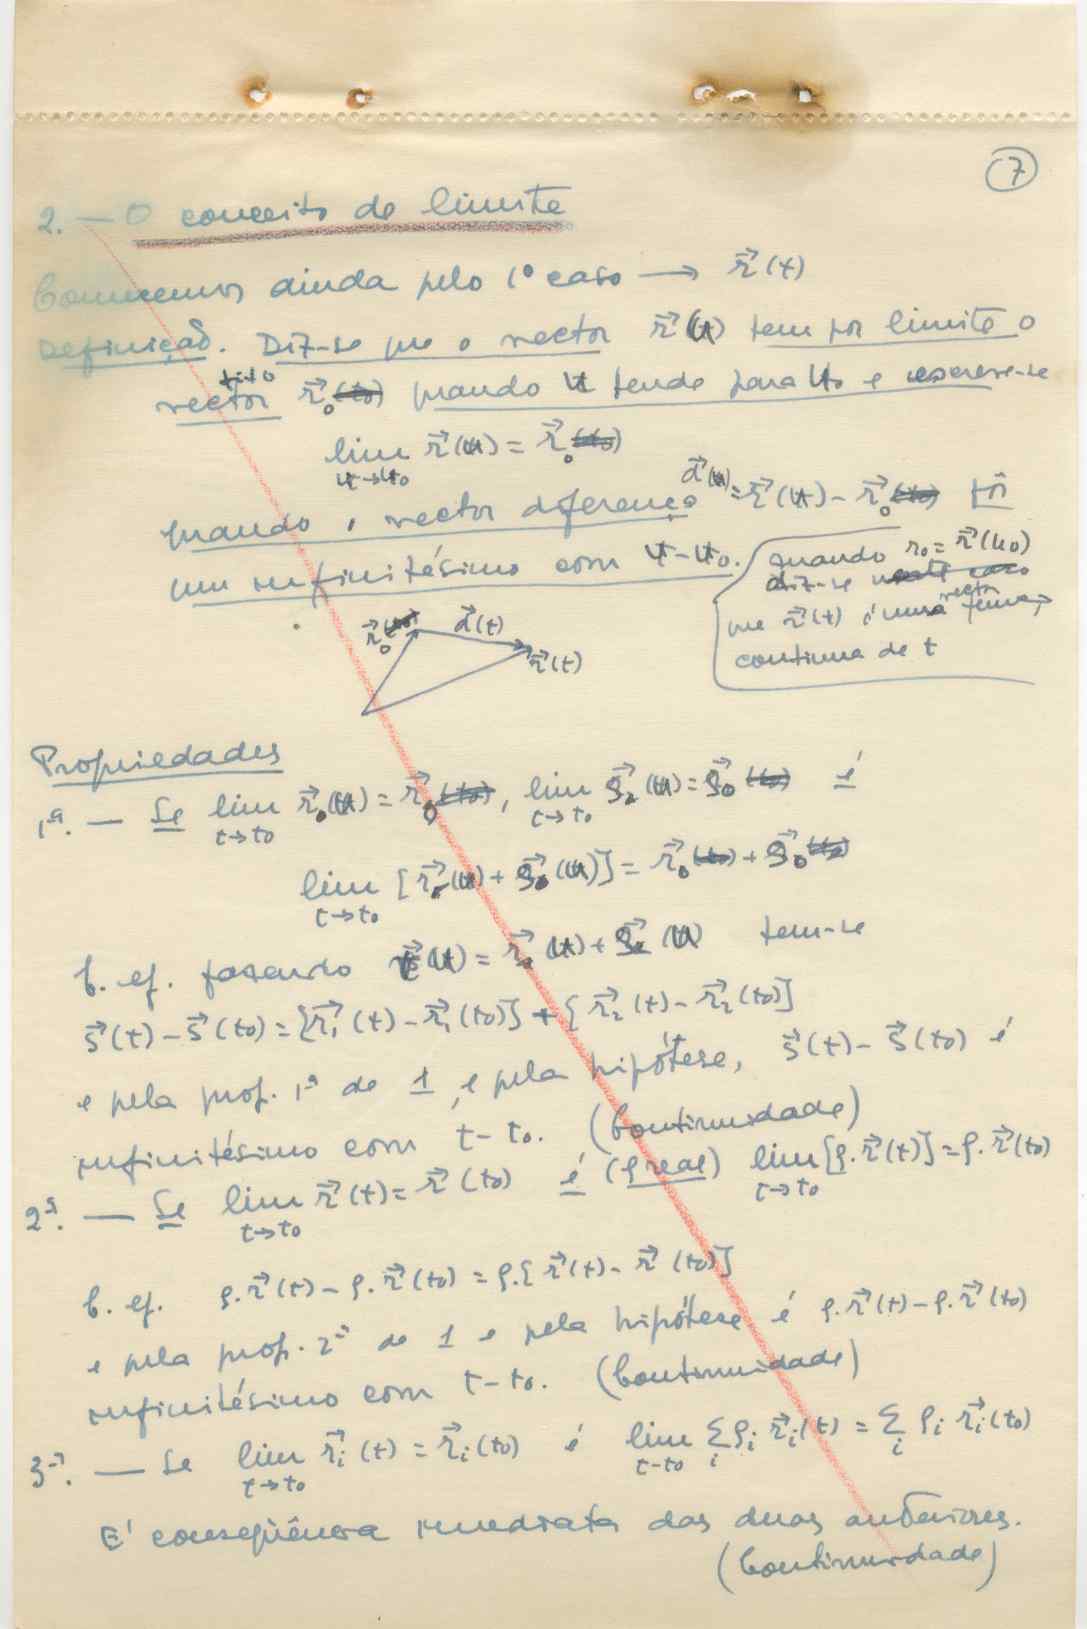 7
2. — O conceito de limite
Comecemos ainda pelo 1º caso → r⃗(t)
Definição. Diz-se que o vector r⃗(u) tem por limite o
vector fixo r⃗₀ quando u tende para u₀ e escreve-se
lim r⃗(u) = r⃗₀
u→u₀
quando o vector diferença d⃗(u) = r⃗(u) - r⃗₀ fôr
um infinitésimo com u-u₀.
quando r₀ = r⃗(u₀)
diz-se neste caso
que r⃗(t) é uma função vector
continua de t
r⃗₀ d⃗(t) r⃗(t)
Propriedades
1ª. — Se lim r⃗₁(u) = r⃗₀, lim ρ⃗₂(u) = ρ⃗₀ é
t→t₀ t→t₀
lim [r⃗(u) + ρ⃗(u)] = r⃗₀ + ρ⃗₀
t→t₀
C. ef. fazendo (u) = r⃗(u) + ρ⃗(u) tem-se
s⃗(t) - s⃗(t₀) = [r⃗₁(t) - r⃗₁(t₀)] + [r⃗₂(t) - r⃗₂(t₀)]
e pela prop. 1ª de 1, e pela hipótese, s⃗(t) - s⃗(t₀) é
infinitésimo com t-t₀. (Continuidade)
2ª. — Se lim r⃗(t) = r⃗(t₀) é (ρ real) lim [ρ.r⃗(t)] = ρ.r⃗(t₀)
t→t₀ t→t₀
C. ef. ρ.r⃗(t) - ρ.r⃗(t₀) = ρ.[r⃗(t) - r⃗(t₀)]
e pela prop. 2ª de 1 e pela hipótese é ρ.r⃗(t) - ρ.r⃗(t₀)
infinitésimo com t-t₀. (Continuidade)
3ª. — Se lim r⃗ᵢ(t) = r⃗ᵢ(t₀) é lim ∑ᵢ ρᵢ r⃗ᵢ(t) = ∑ᵢ ρᵢ r⃗ᵢ(t₀)
t→t₀ t→t₀
E' conseqüência imediata das duas anteriores.
(Continuidade)